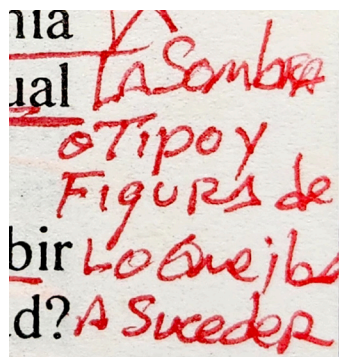 nia
ual La Sombra
o Tipo y
Figura de
bir Lo Que iba
d? A Suceder